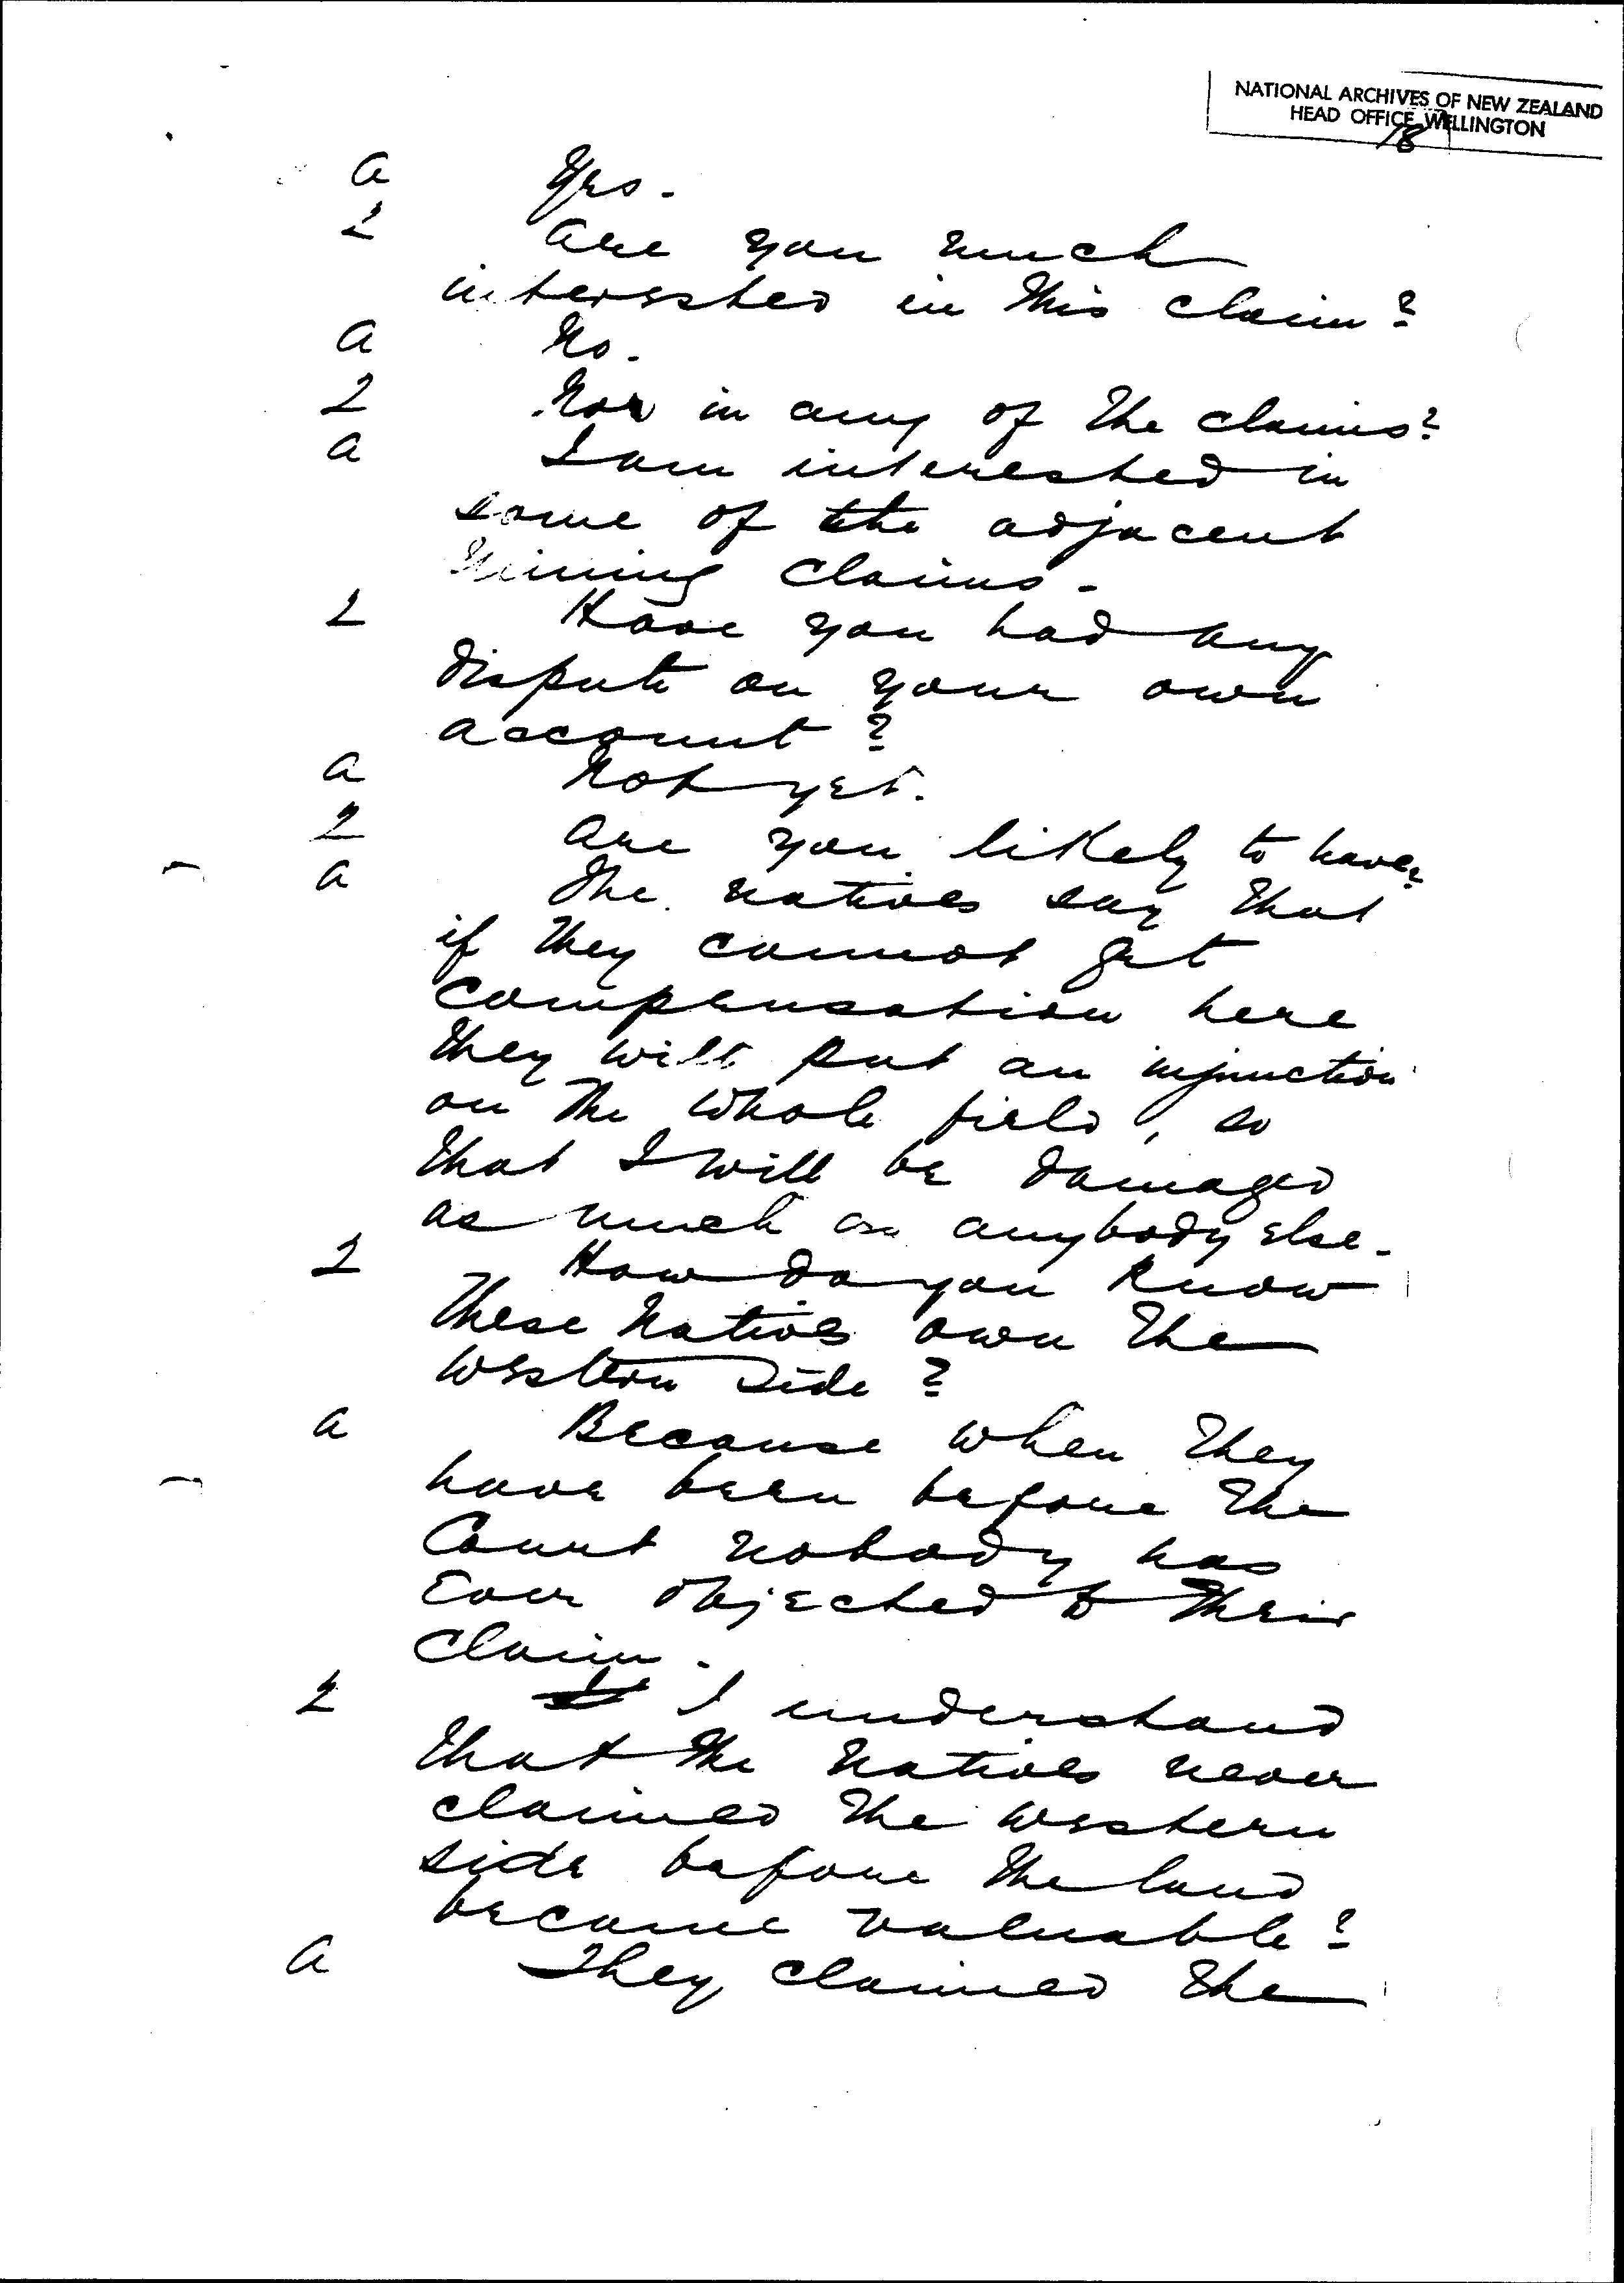 NATIONAL ARCHIVES OF NEW ZEALAND
HEAD OFFICE WELLINGTON
18
A Yes.
Q Are you much
interested in this claim?
A No.
Q Nor in any of the claims?
A I am interested in
some of the adjacent
Mining Claims.
Q Have you had any
dispute on your own
account?
A Not yet.
Q Are you likely to have?
A The natives say that
if they cannot get
compensation here
they will put an injunction
on the whole field, so
that I will be damaged
as much as anybody else.
Q How do you know
these Natives own the
Western Side?
A Because when they
have been before the
Court nobody has
ever objected to their
claim.
Q I understand
that the Natives never
claimed the western
side before the land
became valuable?
A They claimed the